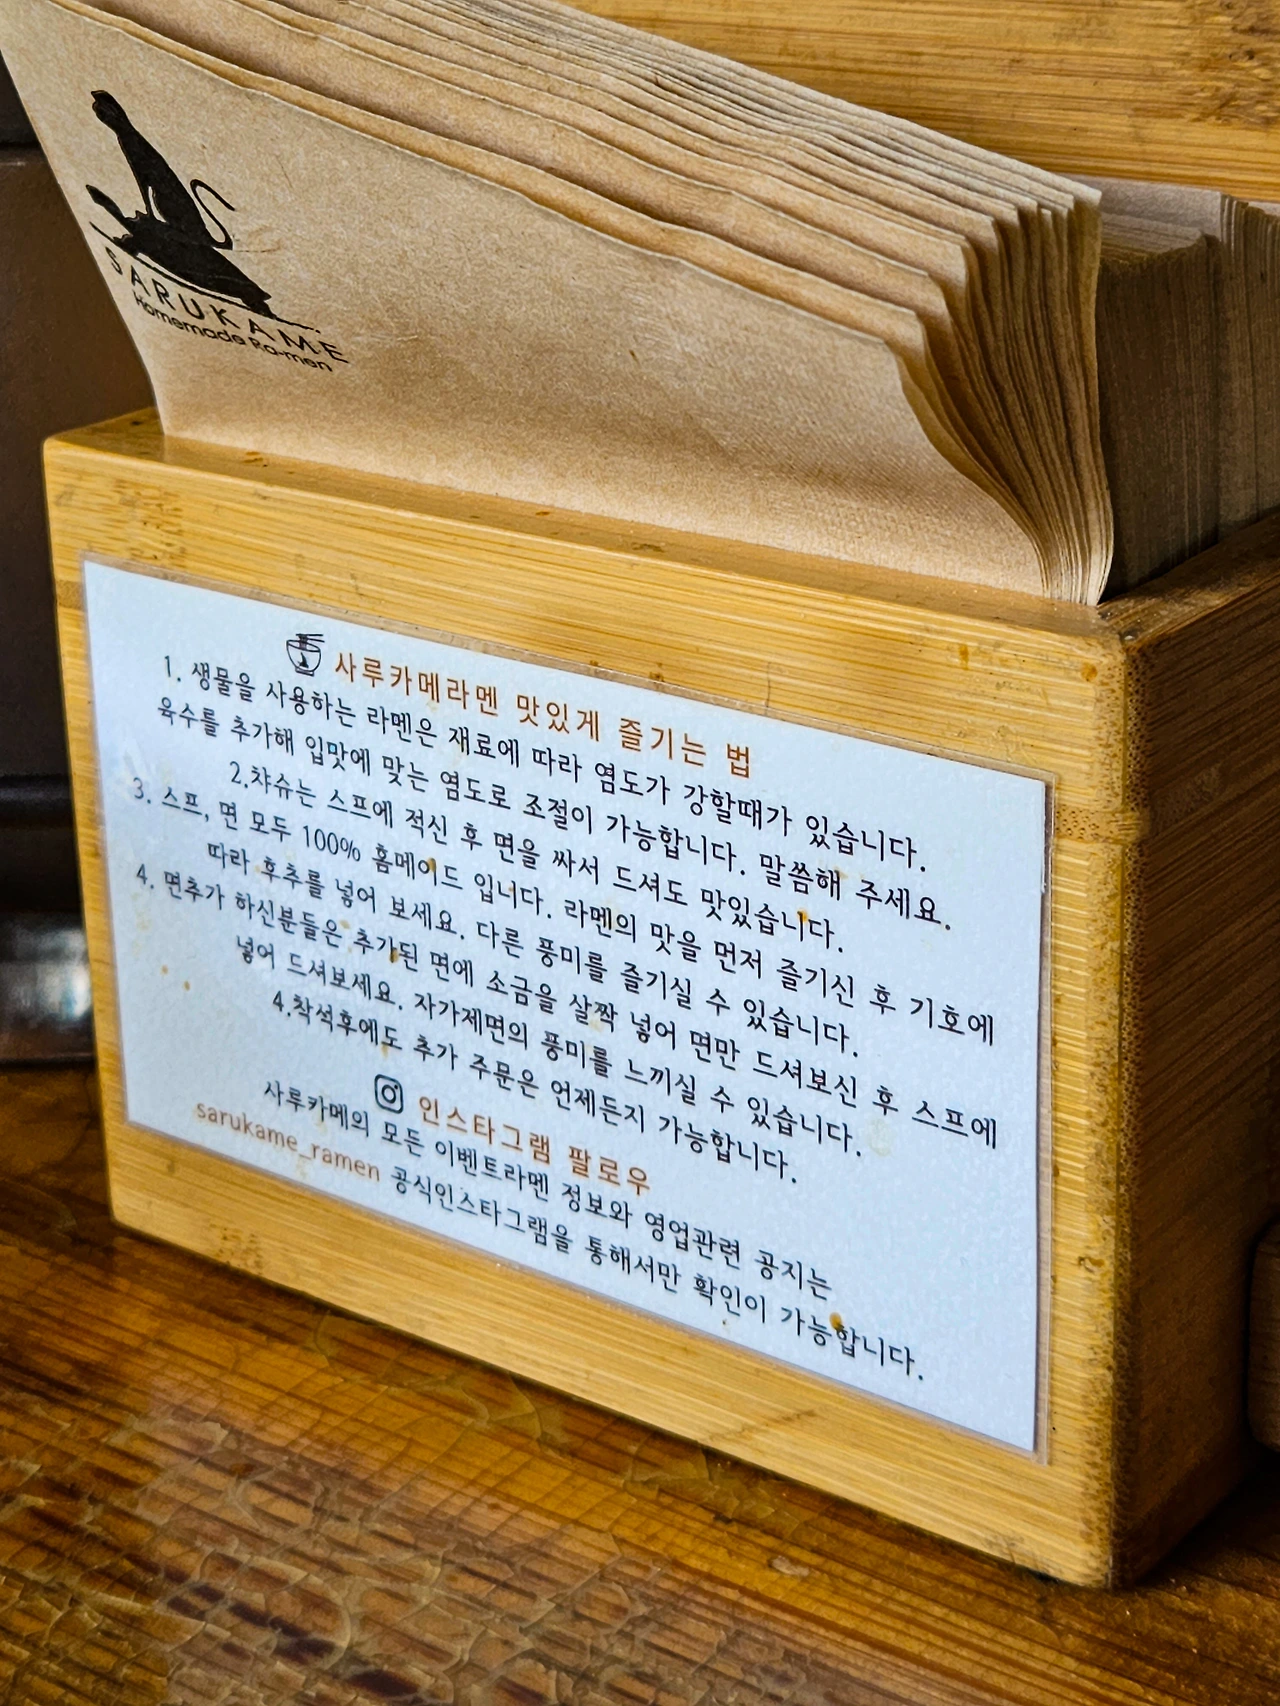 SARUKAME
Homemade Ra-men
사루카메라멘 맛있게 즐기는 법
1. 생물을 사용하는 라멘은 재료에 따라 염도가 강할때가 있습니다.
육수를 추가해 입맛에 맞는 염도로 조절이 가능합니다. 말씀해 주세요.
2.챠슈는 스프에 적신 후 면을 싸서 드셔도 맛있습니다.
3. 스프, 면 모두 100% 홈메이드 입니다. 라멘의 맛을 먼저 즐기신 후 기호에
따라 후추를 넣어 보세요. 다른 풍미를 즐기실 수 있습니다.
4. 면추가 하신분들은 추가된 면에 소금을 살짝 넣어 면만 드셔보신 후 스프에
넣어 드셔보세요. 자가제면의 풍미를 느끼실 수 있습니다.
4.착석후에도 추가 주문은 언제든지 가능합니다.
인스타그램 팔로우
사루카메의 모든 이벤트라멘 정보와 영업관련 공지는
sarukame_ramen 공식인스타그램을 통해서만 확인이 가능합니다.